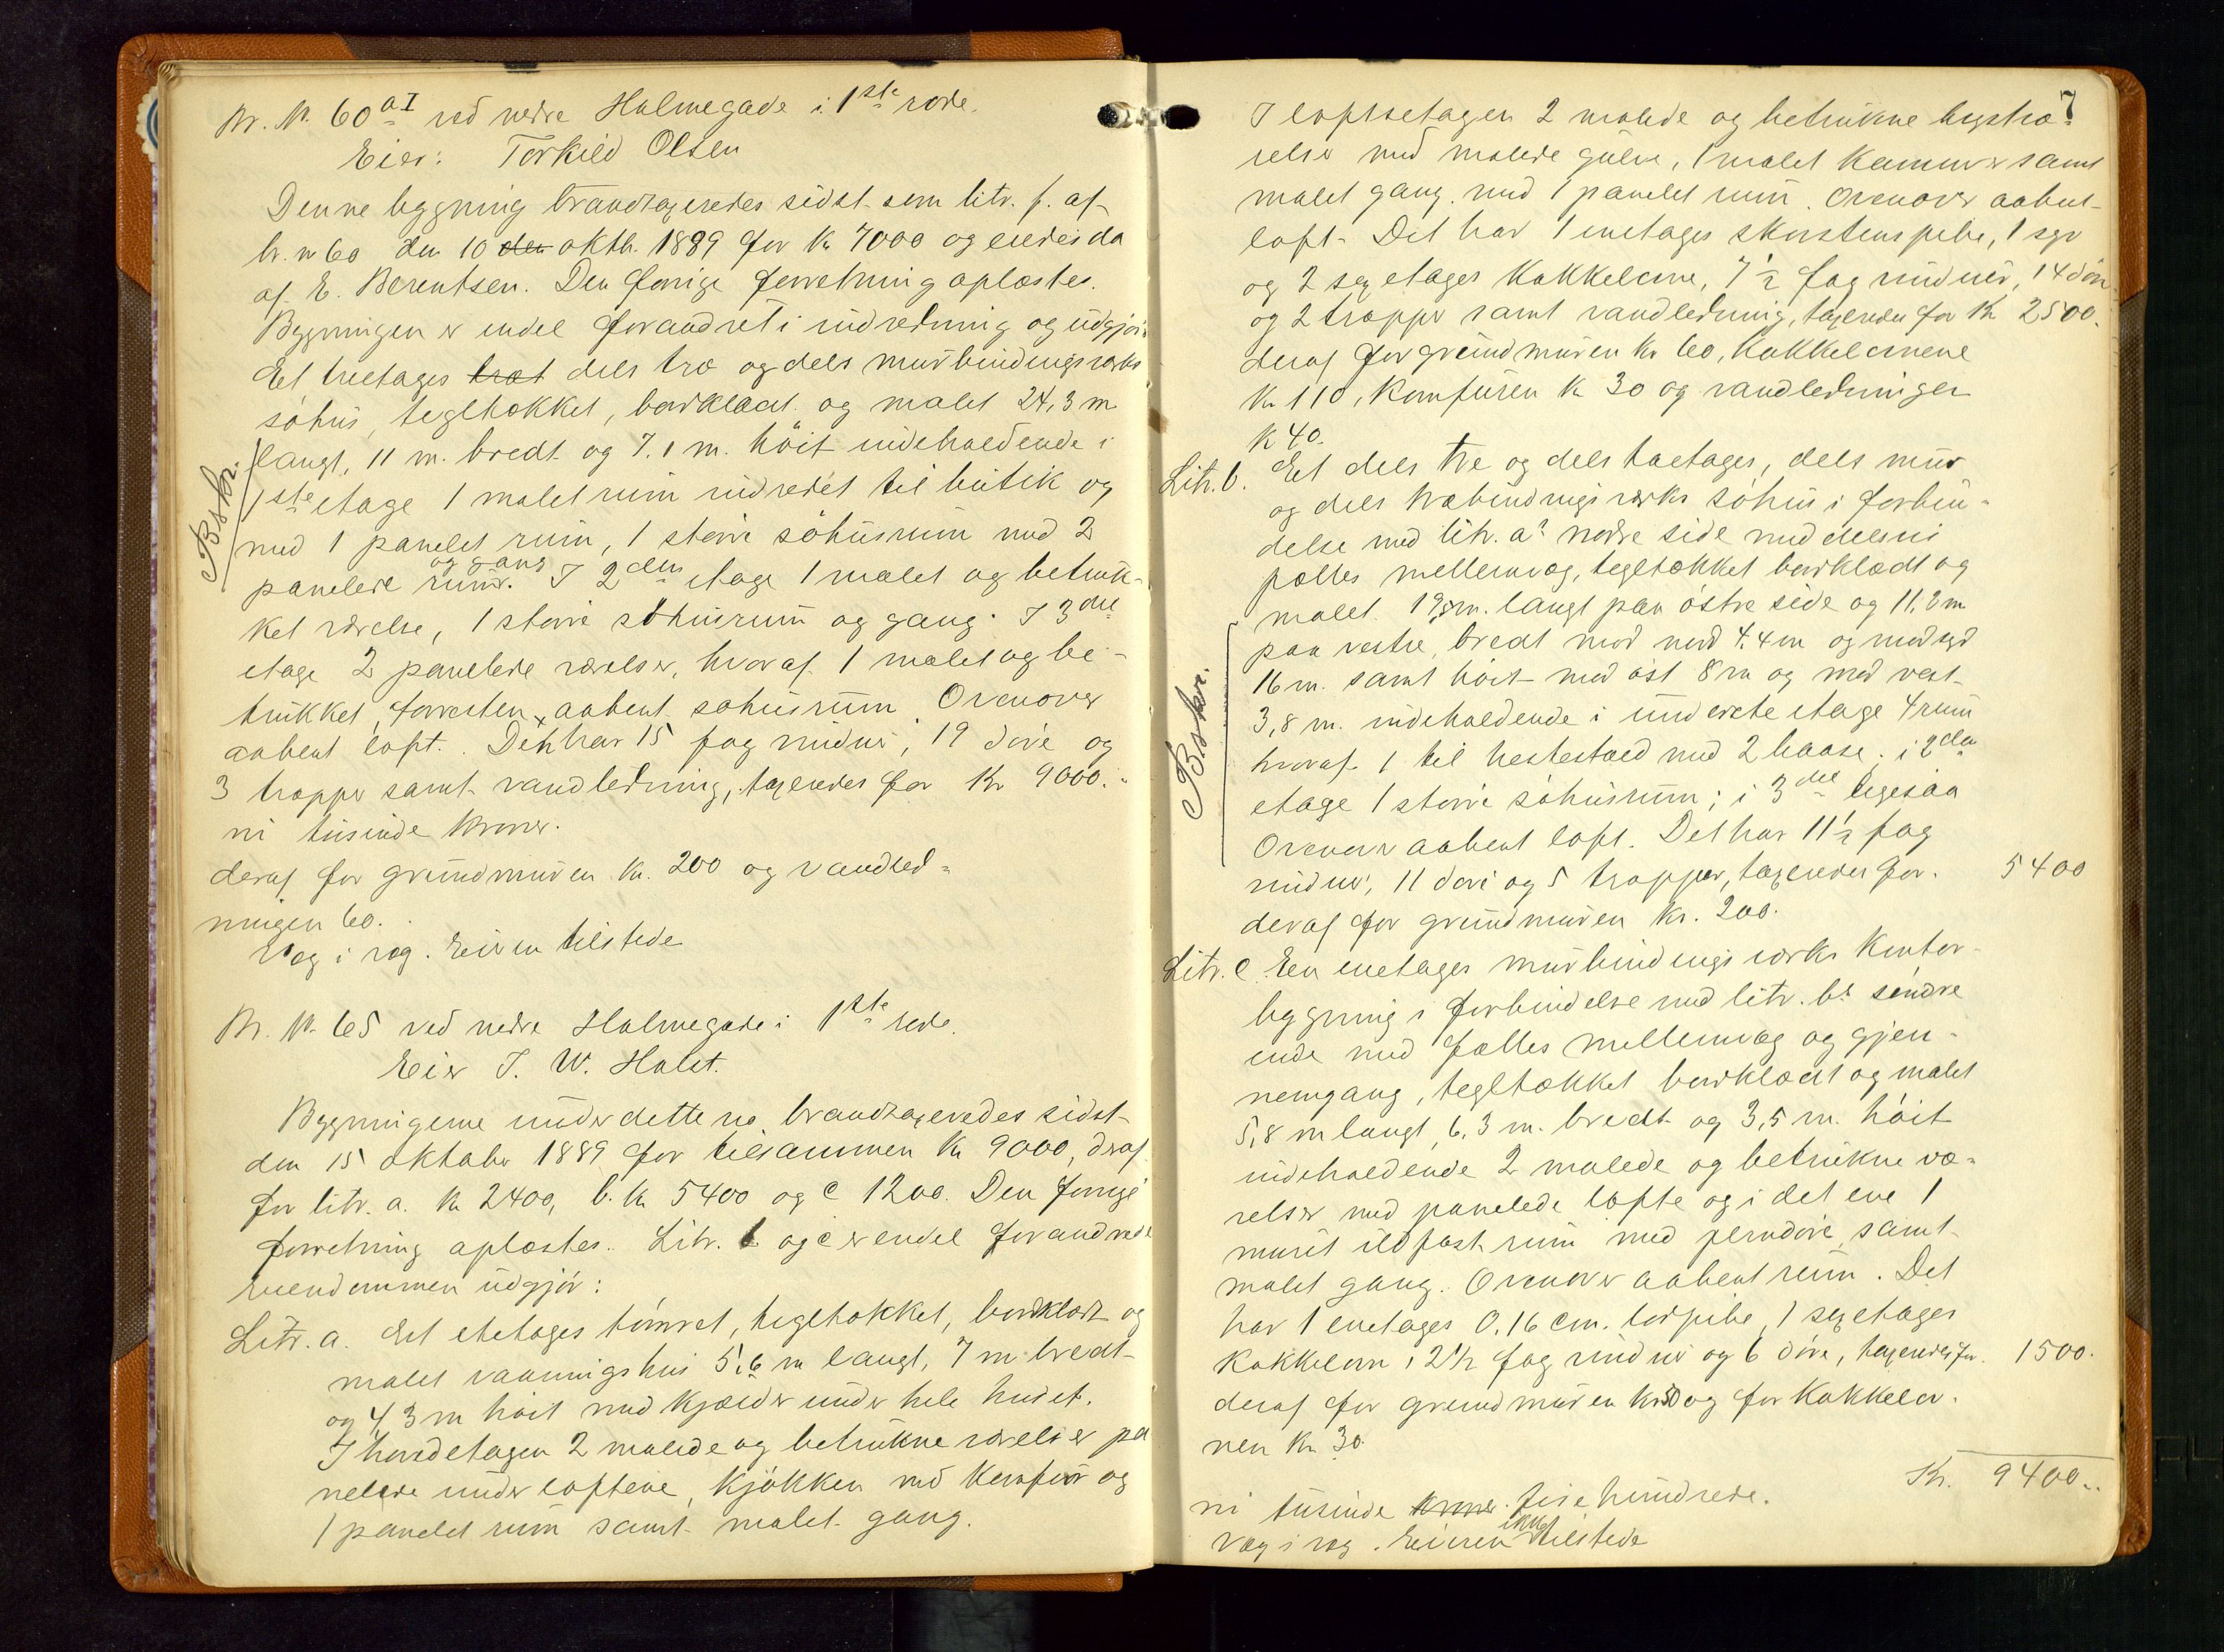 Br. N. 60 a I ved nedre Holmegade i 1ste rode.
Eier: Torkild Olsen
Denne bygning brandtaxeredes sidst som litr. f. af
br. n 60 den 10 den oktb. 1889 for Kr 7000 og eiedes da
af E. Berentsen. Den forrige forretning oplæstes.
Bygningen er endel forandret i indredning og udgjør:
Et treetages træt dels træ og dels murbindingsværks
søhus, tegltækket, bordklædt og malet 24,3 m
Bskr.
langt, 11 m. bredt og 7.1 m. höit indeholdende i
1ste etage 1 malet rum indredet til butik og
med 1 panelet rum, 1 större söhusrum med 2
panelede rum og gang. I 2den etage 1 malet og betruk-
ket værelse, 1 större söhusrum og gang. I 3die
etage 2 panelede værelser, hvoraf 1 malet og be-
trukket, forresten aabent søhusrum. Ovenover
aabent loft. Det har 15 fag vinduer, 19 döre og
3 trapper samt vandledning, taxeredes for Kr 9000.-
ni tusinde kroner.
deraf for grundmuren Kr. 200 og vandled-
ningen 60.
Væg i væg. Eieren tilstede
Br. N. 65 ved nedre Holmegade i 1ste rode.
Eier T. W. Holst.
Bygningerne under dette no brandtaxeredes sidst
den 15 oktober 1889 for tilsammen Kr 9000, deraf
for litr. a. Kr 2400, b. Kr 5400 og c 1200. Den forrige
forretning oplæstes. Litr. b og c er endel forandrede
Eiendommen udgjør:
Litr. a. Et etetages tömret, tegltækket, bordklædt og
malet vaaningshus 5,6 m langt, 7 m bredt
og 4,3 m höit med kjælder under hele huset.
I hovedetagen 2 malede og betrukne værelser pa
nelede under loftene, kjökken med komfur og
1 panelet rum samt malet gang.
7
I loftsetagen 2 malede og betrukne
relser med malede gulve, 1 malet kammer samt
malet gang med 1 panelet rum. Ovenover aabent
loft. Det har 1 enetages skorstenspibe, 1
og 2 etages kakkelovne, 7 1/2 fag vinduer, 14 döre
og 2 trapper samt vandledning, taxeredes for Kr 2500.
deraf for grundmuren Kr 60, kakkelovnene
Kr 110, komfuren Kr 30 og vandledningen
Kr 40.
Litr. b. Et dels tre og dels toetages, dels mur
og dels træbindingsværks söhus i forbin-
delse med litr. a's nordre side med delsvis
fælles mellemvæg, tegltækket bordklædt og
malet 19,8 m. langt paa östre side og 11,2 m
Bskr.
paa vestre, bredt mod nord 4.4 m og mod syd
16 m. samt höit mod öst 8 m og mod vest
3,8 m. indeholdende i underste etage 4 rum
hvoraf 1 til hestestald med 2 baase; i 2den
etage 1 större söhusrum; i 3die ligesaa
Ovenover aabent loft. Det har 11 1/2 fag
vinduer, 11 döre og 5 trapper, taxeredes for. 5400
deraf for grundmuren Kr. 200.
Litr. c. En enetages murbindingsværks kontor-
bygning i forbindelse med litr. b's söndre
ende med fælles mellemvæg og gjen-
nemgang, tegltækket bordklædt og malet
5,8 m langt, 6,3 m. bredt og 3,5 m. höit
indeholdende 2 malede og betrukne væ-
relser med panelede lofte og i det ene 1
muret ildfast rum med jerndöre, samt
malet gang. Ovenover aabent rum. Det
har 1 enetages 0.16 cm. pibe, 1 etages
kakkelovn, 2 1/2 fag vinduer og 6 döre, taxeredes for. 1500.
deraf for grundmuren Kr 50 og for kakkelov-
nen Kr 30.
Kr. 9400..
ni tusinde kroner fire hundrede.
Væg i væg. Eieren ikke tilstede